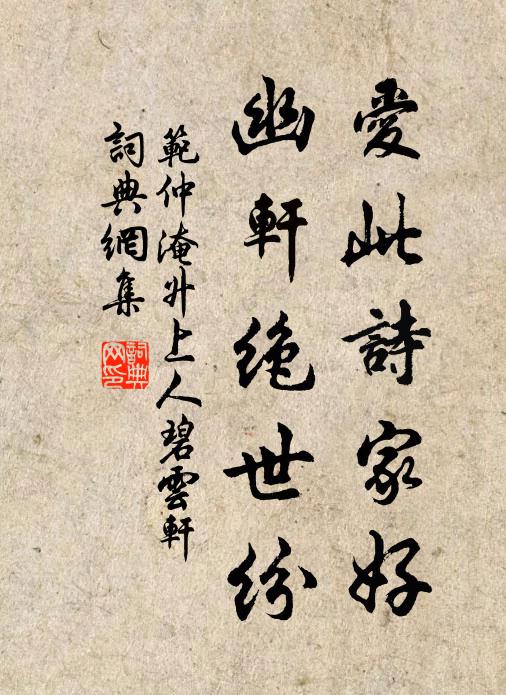 愛此詩家好
幽軒絕世紛
範仲淹升上人碧雲軒
詞典網集
詞典
网印